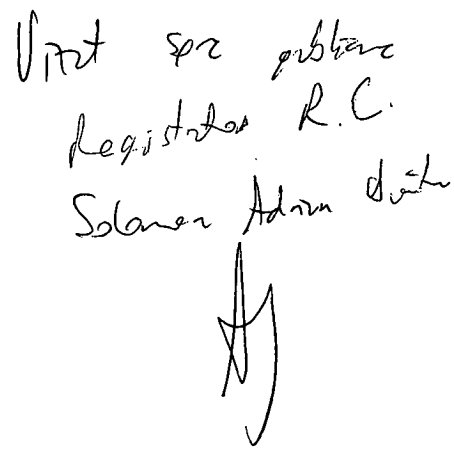 Vizat spre publicare
Registrator R.C.
Solomon Adrian